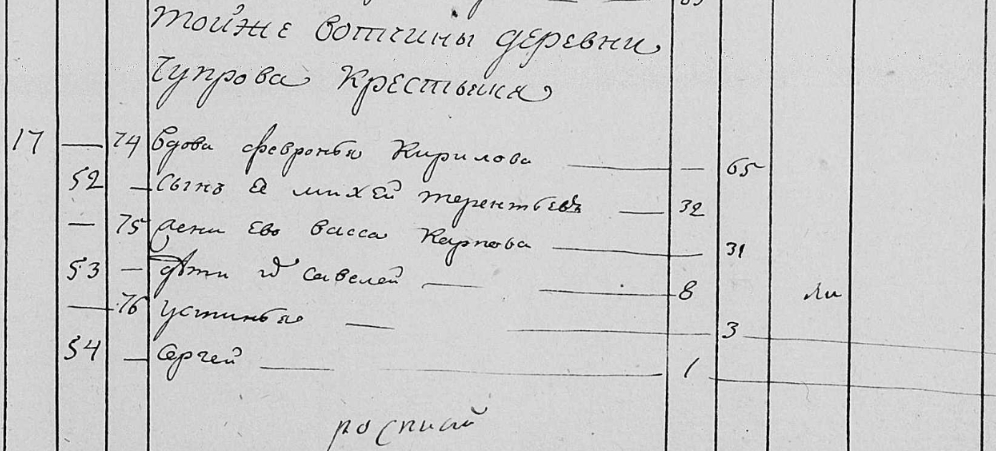 тойже вотчины деревни
Чупрова крестьяня
17 — 74 вдова февронья Кирилова — — 65
52 — сынъ ея михей терентьевъ — 32
— 75 жена ево васса Карпова — 31
53 — дѣти их савелей — 8 ли
— 76 устинья — 3
54 — сергей — 1